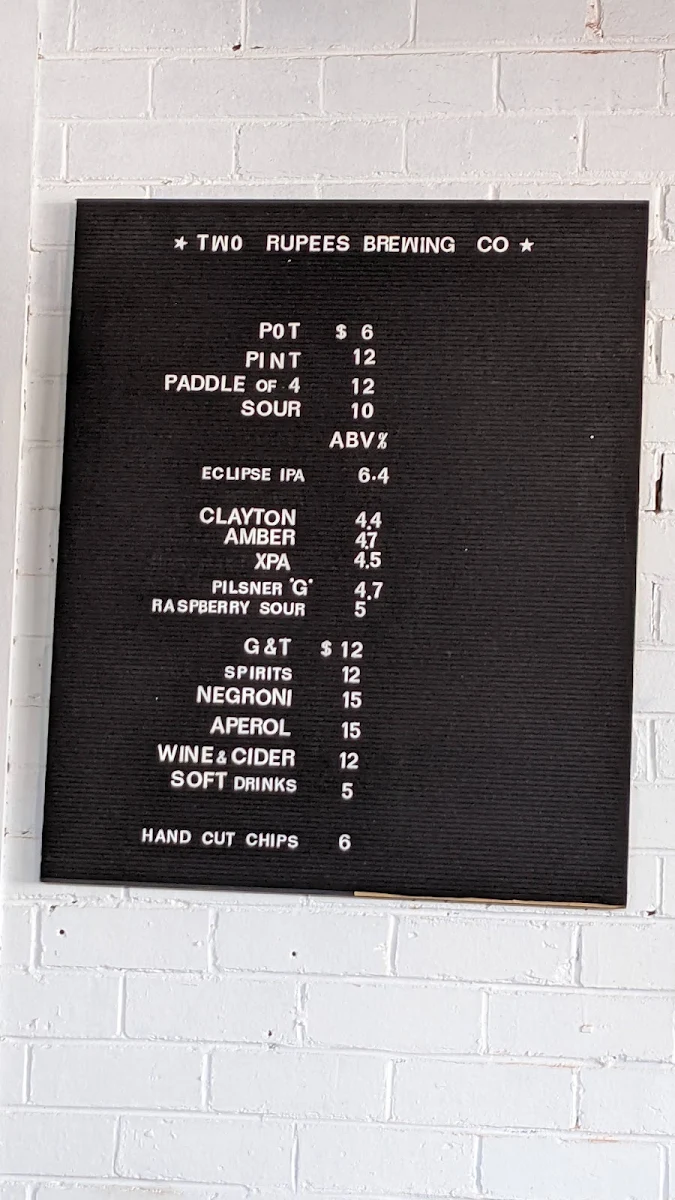 ★ TWO RUPEES BREWING CO ★
POT $ 6
PINT 12
PADDLE OF 4 12
SOUR 10
ABV%
ECLIPSE IPA 6.4
CLAYTON 4.4
AMBER 4.7
XPA 4.5
PILSNER "G" 4.7
RASPBERRY SOUR 5
G&T $ 12
SPIRITS 12
NEGRONI 15
APEROL 15
WINE & CIDER 12
SOFT DRINKS 5
HAND CUT CHIPS 6